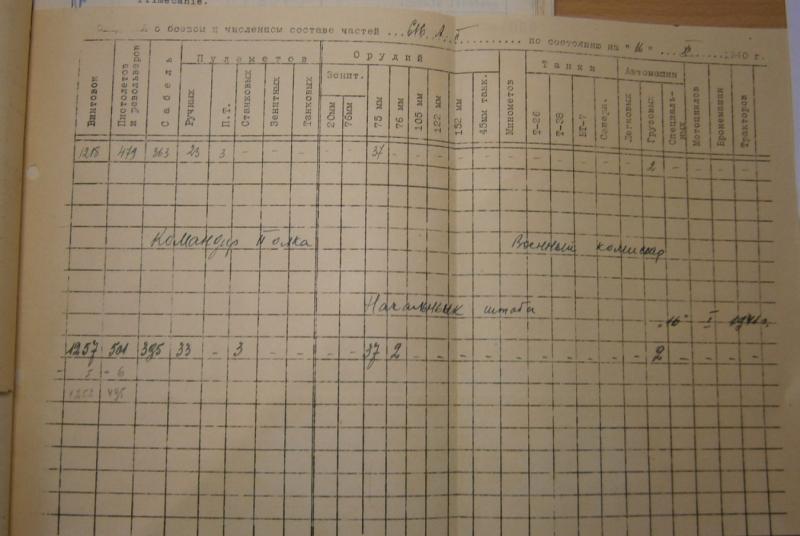 о боевом и численном составе частей ... по состоянию на "16" ... 1940 г.
Пулеметов Орудий Танки Автомашин
Зенит.
Винтовок Пистолетов и револьверов Сабель Ручных П.Т. Станковых Зенитных Танковых 20мм 76мм 75 мм 76 мм 105 мм 122 мм 152 мм 45мм танк. Минометов Т-26 Т-38 БТ-7 Легковых Грузовых Специальных Мотоциклов Бронемашин Тракторов
1218 479 363 23 3 - - - - - 37 - - - - - - - - - - - 2 - - - -
Командир Полка Военный комиссар
Начальнык штаба
"16" I 1941 г.
1257 501 395 33 - 3 - - - - 37 2 - - - - - - - - - - 2 - - - -
- 5 - 6
1252 495